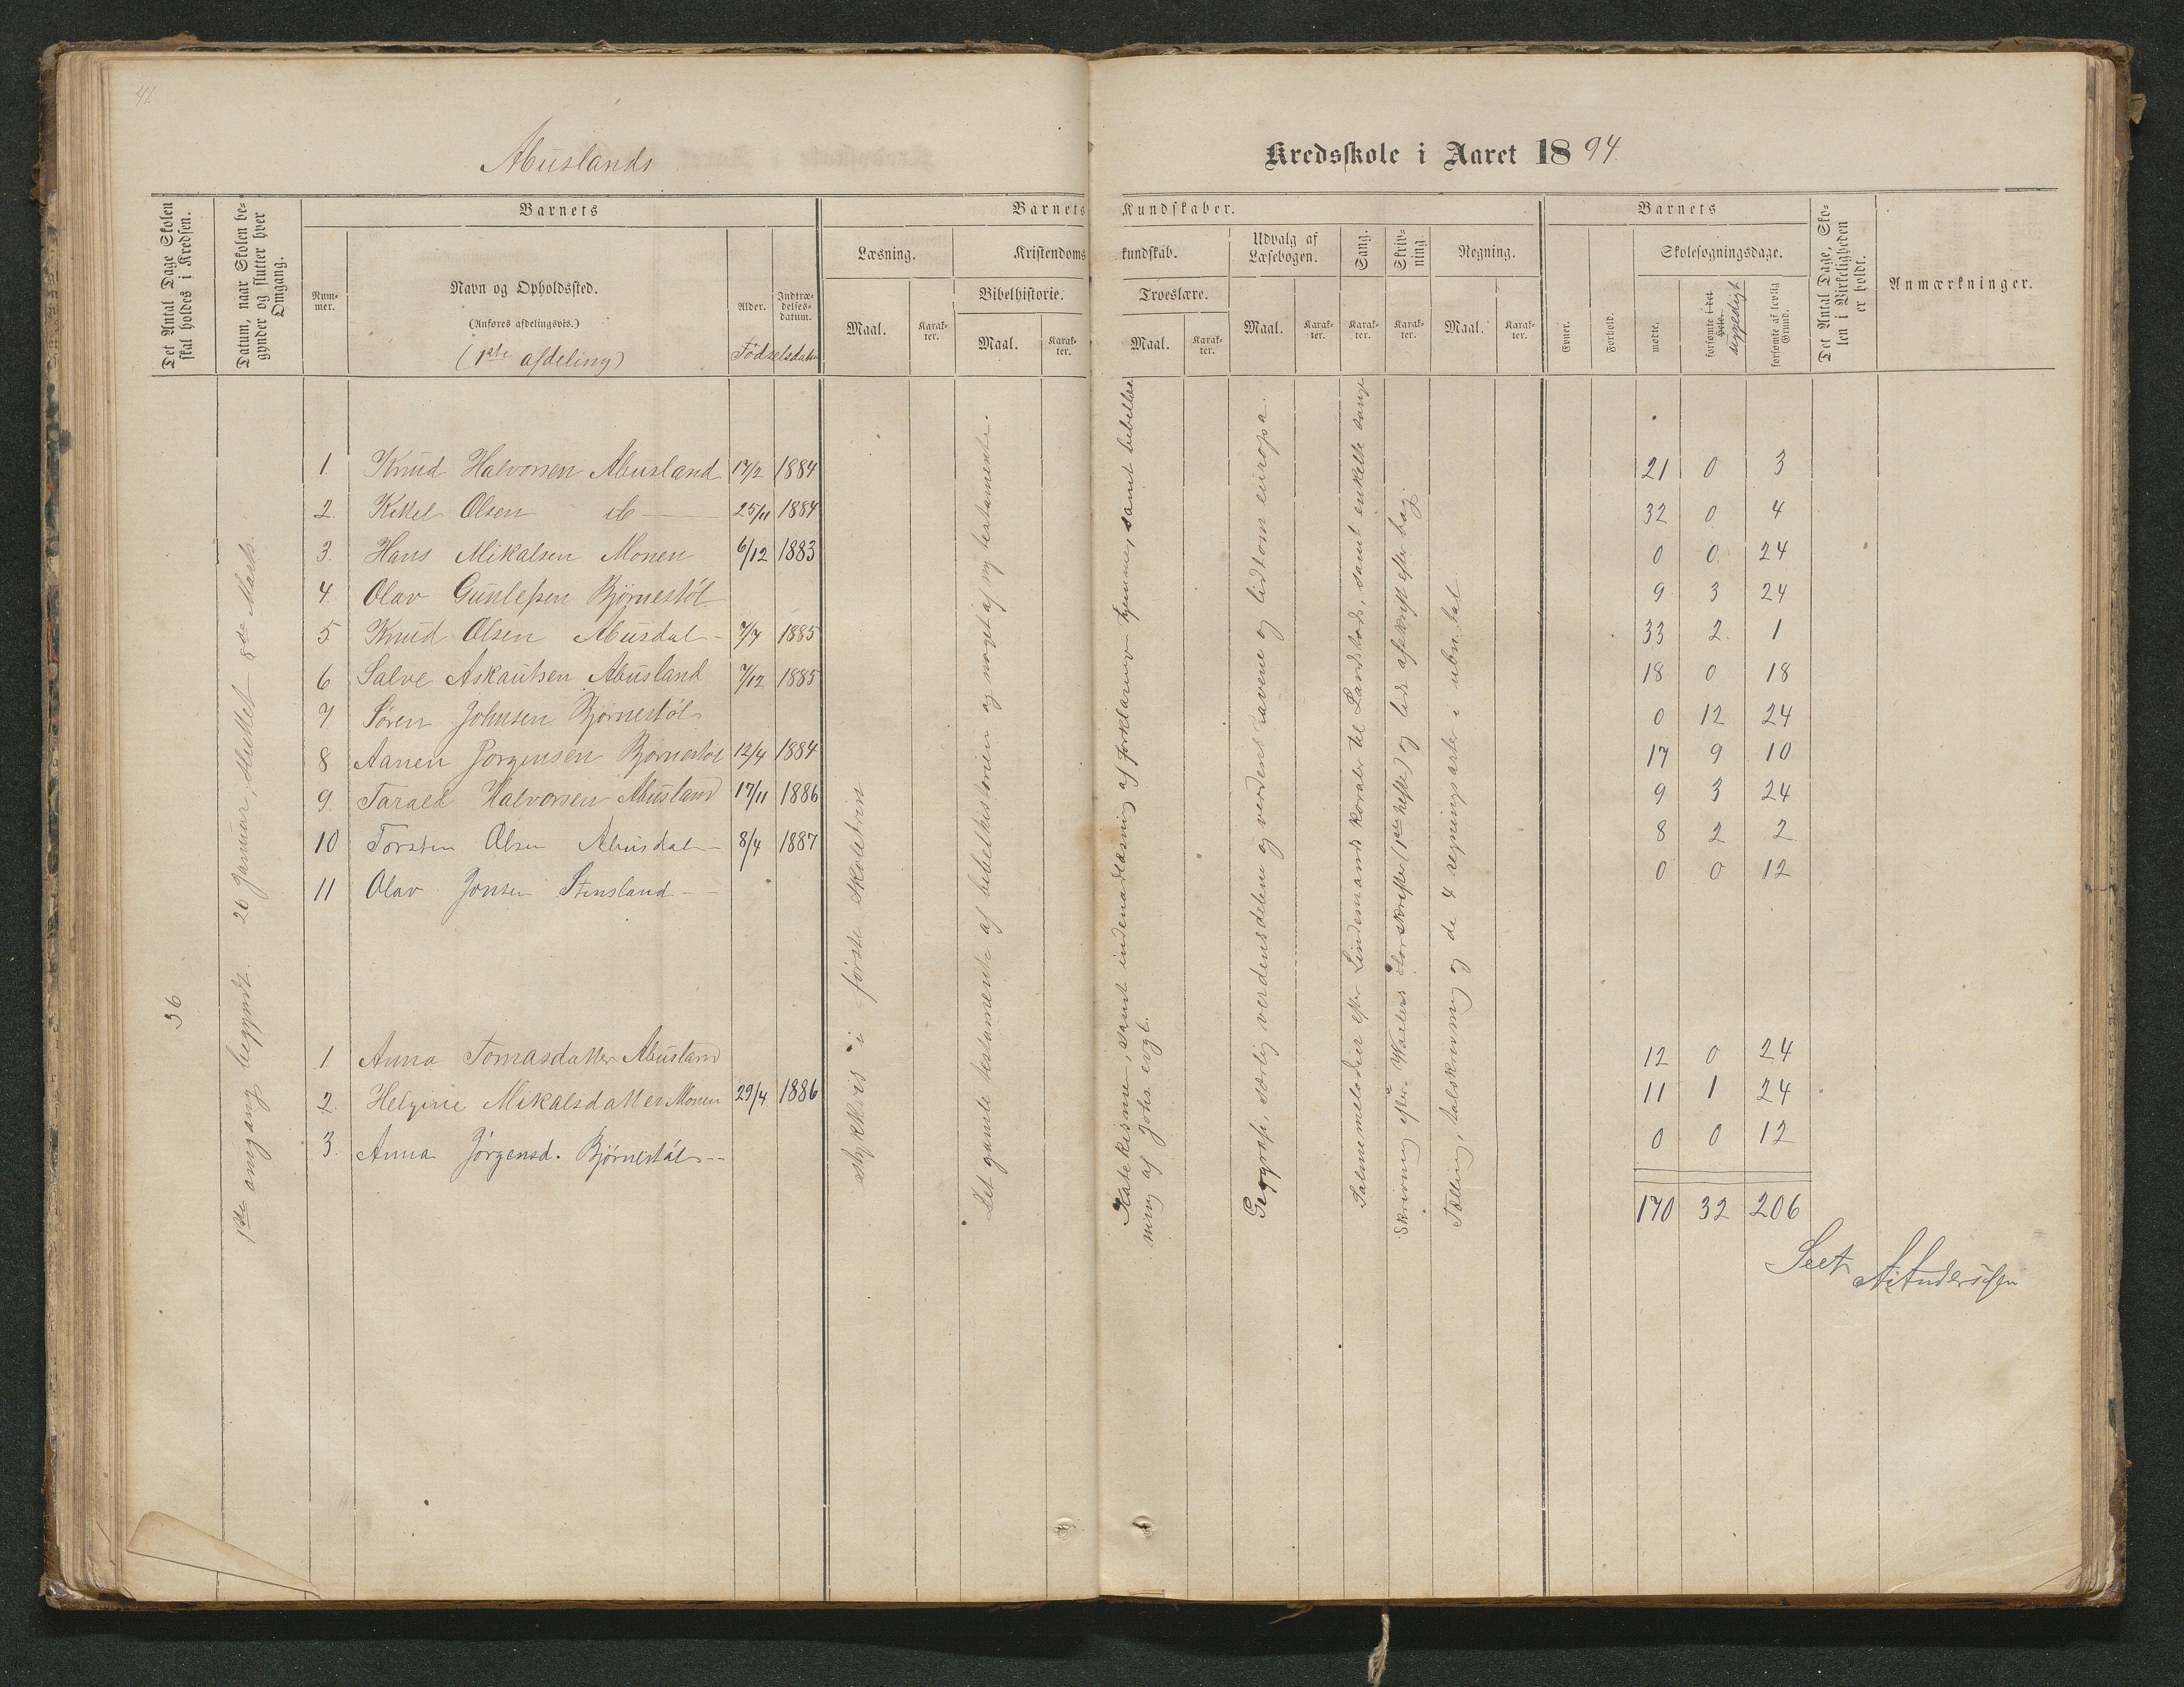 41.
Abuslands
Kredsskole i Aaret 1894.
Det Antal Dage Skolen skal holdes i Kredsen.
Datum, naar Skolen begynder og slutter hver Omgang.
Barnets
Num-
mer.
Navn og Opholdssted.
(Anføres afdelingsvis.)
(1ste afdeling)
Alder.
Indtræ-
delses-
datum.
Fødselsdatum
Barnets Kundskaber.
Læsning.
Maal.
Karak-
ter.
Kristendomskundskab.
Bibelhistorie.
Maal.
Karak-
ter.
Troeslære.
Maal.
Karak-
ter.
Udvalg af
Læsebogen.
Maal.
Karak-
ter.
Sang.
Karak-
ter.
Skriv-
ning.
Karak-
ter.
Regning.
Maal.
Karak-
ter.
Barnets
Evner.
Forhold.
Skolesøgningsdage.
mødte.
forsømte i det Hele.
forsømte af lovlig Grund.
Det Antal Dage, Sko-
len i Virkeligheden
er holdt.
Anmærkninger.
36
1ste omgang begyndt 26 Januar, sluttet 8de Marts.
1. Knud Halvorsen Abusland 17/2 1884 21 0 3
2. Kittel Olsen do 25/11 1884 32 0 4
3. Hans Mikalsen Monen 6/12 1883 0 0 24
4. Olav Gunlefsen Bjørnestøl 9 3 24
5 Knud Olsen Abusdal 7/7 1885 33 2 1
6 Salve Askautsen Abusland 7/12 1885 18 0 18
7 Søren Johnsen Bjørnestøl 0 12 24
8 Aanen Jørgensen Bjørnestøl 12/4 1884 17 9 10
9. Tarald Halvorsen Abusland 17/11 1886 9 3 24
10 Torsten Olsen Abusdal 8/4 1887 8 2 2
11 Olav Jonsen Stensland 0 0 12
1 Anna Tomasdatter Abusland 12 0 24
2. Helgine Mikalsdatter Monen 29/4 1886 11 1 24
3. Anna Jørgensd. Bjørnestøl 0 0 12
170 32 206
stykkevis i første skoletrin
Det gamle testamente af bibelhistorien og noget af ny testamente.
Katekisme, samt indenadlæsning af forklaringen hjemme, samt bibellæs
ning af Johs. evgl.
Geograf, særlig verdensdelene og verdenshavene og lidt om europa.
Salmemelodier efter Lindemans koraler til Landstads, samt enkelte sange
Skrivning efter Waalers forskrifter (1ste hefte) og lidt afskrift efter bog.
Tælling, talskrivning og de 4 regningsarter i ubn. tal
Seet A. Anderssen